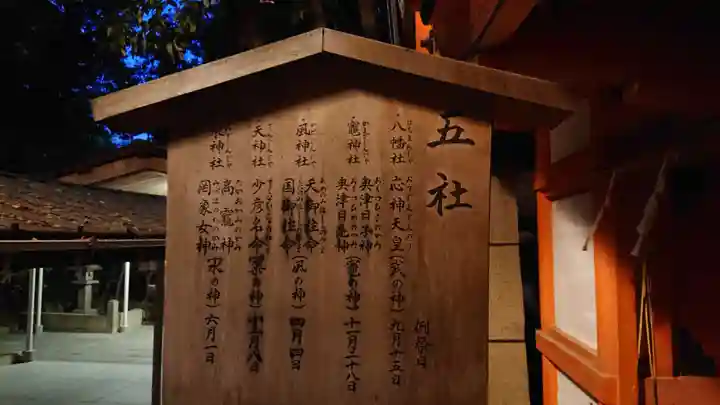 五社
例祭日
八幡社
応神天皇(武の神)九月十五日
竈神社
奥津日子神
奥津日売神(竈の神)十一月二十八日
風神社
天御柱命
国御柱命(風の神)四月四日
天神社
少彦名命(薬の神)十一月八日
水神社
高龗神
罔象女神(水の神)六月一日